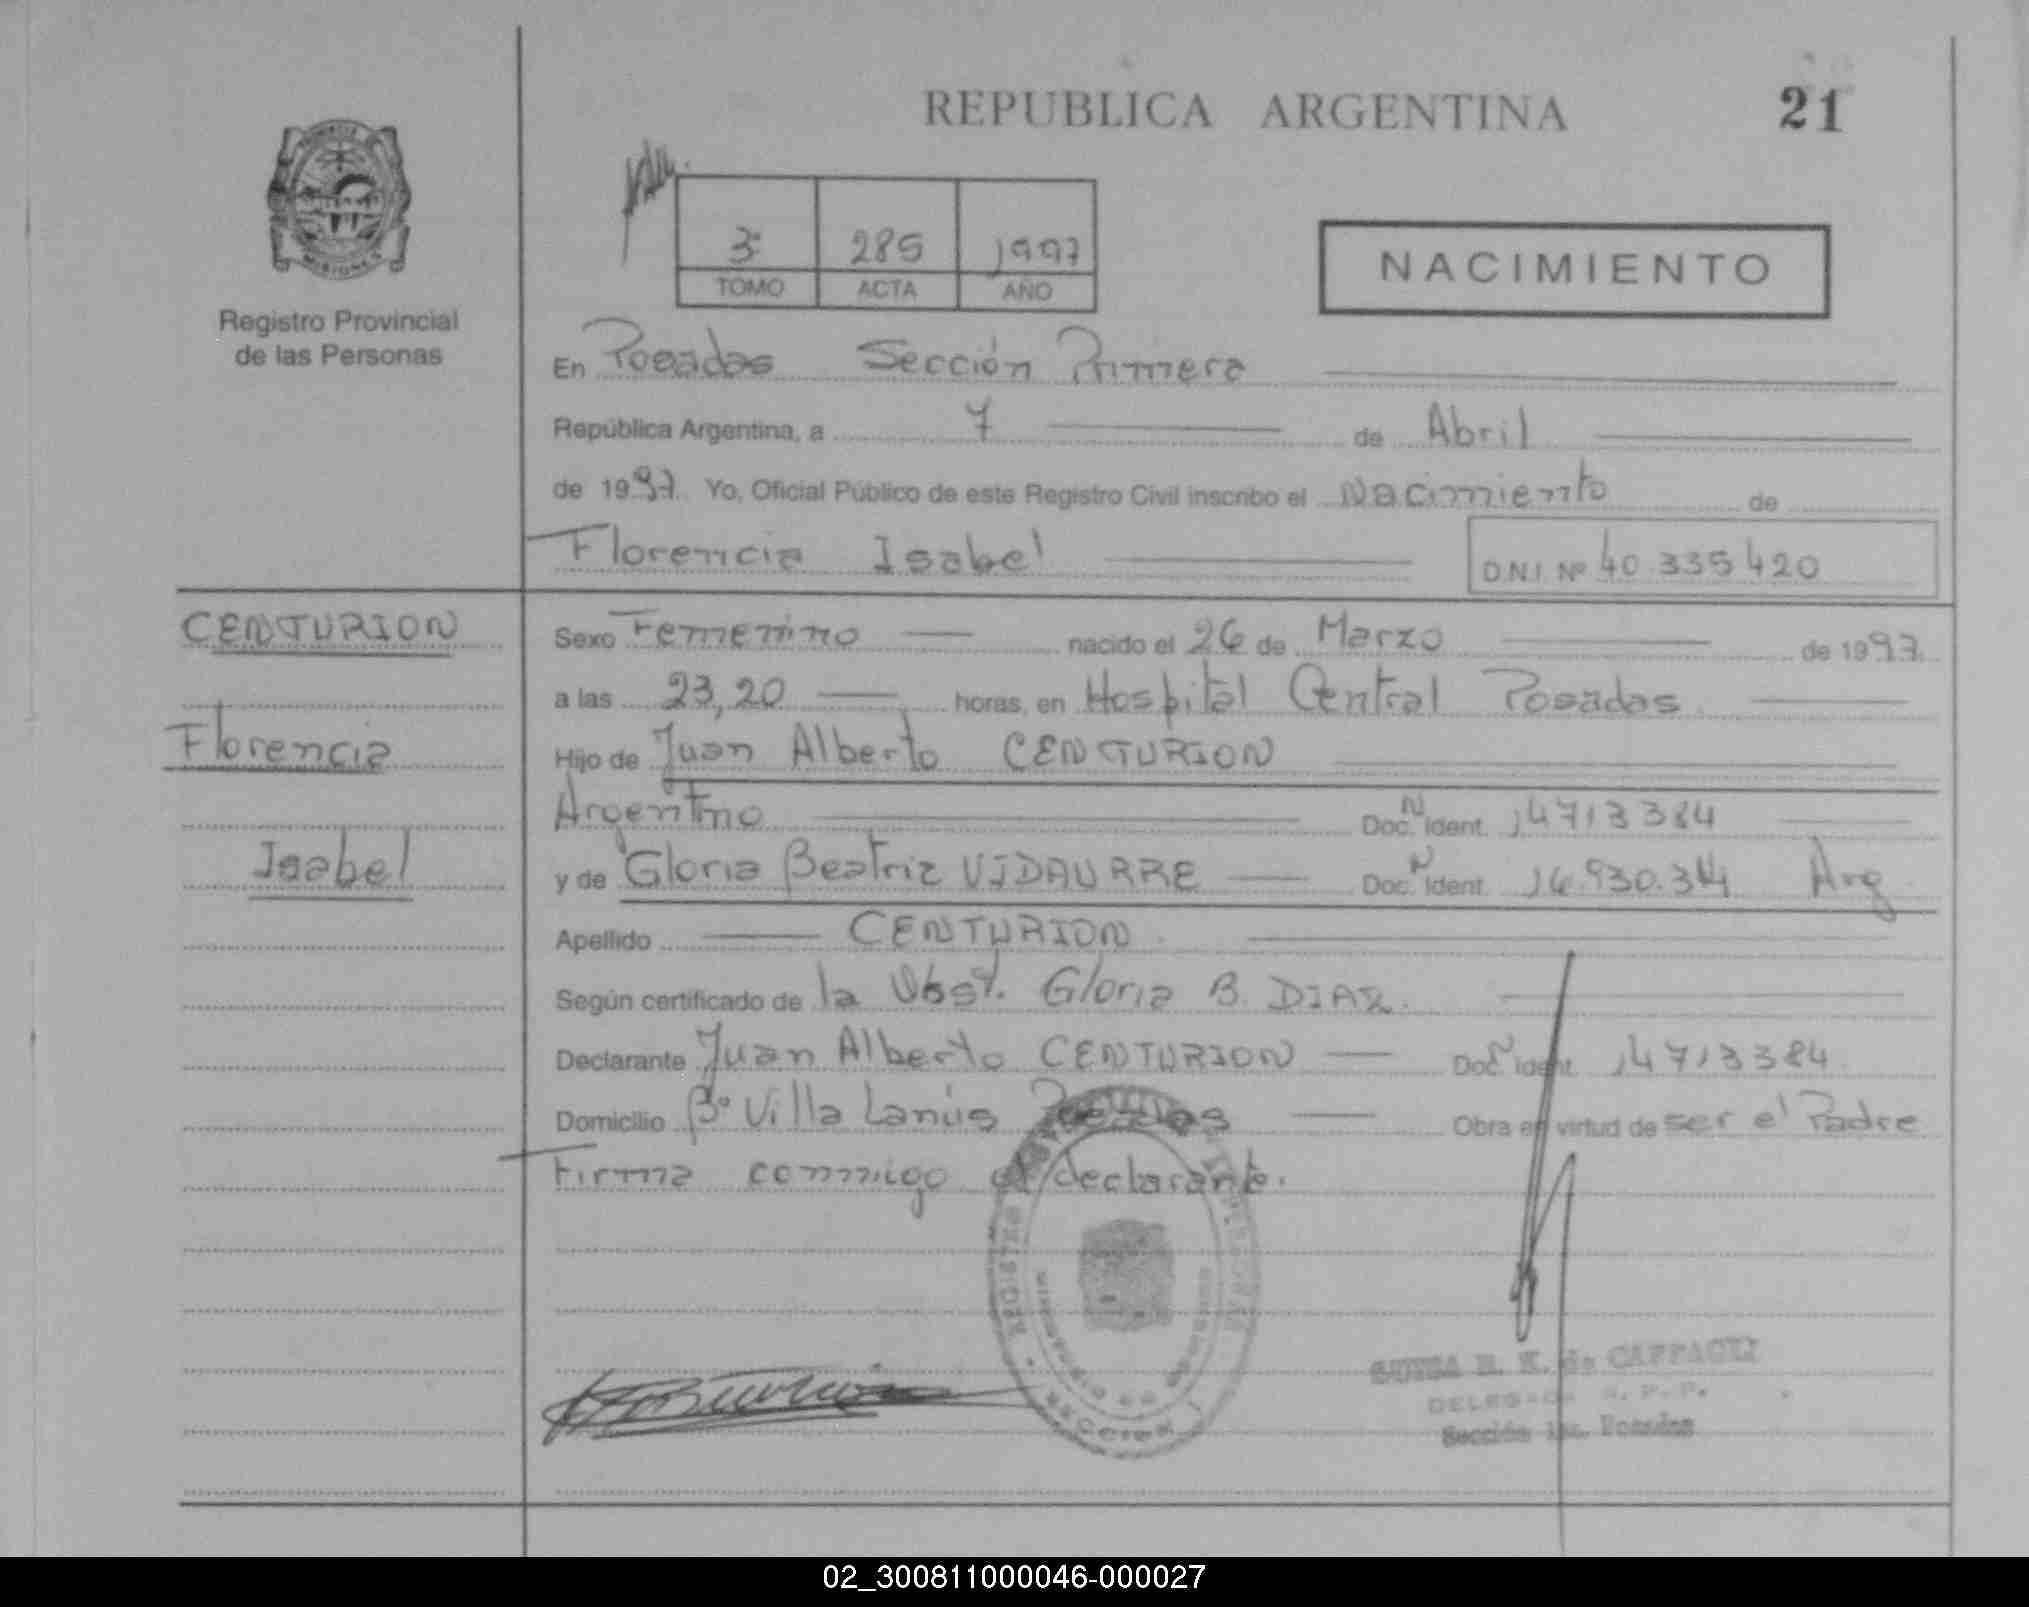 REPUBLICA ARGENTINA
21
MISIONES
Registro Provincial
de las Personas
3º 285 1997
TOMO ACTA AÑO
NACIMIENTO
En Posadas Sección Primera
República Argentina, a 7 de Abril
de 1997. Yo, Oficial Público de este Registro Civil inscribo el Nacimiento de
Florencia Isabel D.N.I. Nº 40.335.420
CENTURION
Florencia
Isabel
Sexo Femenino nacido el 26 de Marzo de 1997
a las 23,20 horas, en Hospital Central Posadas
Hijo de Juan Alberto CENTURION
Argentino Doc. Ident. 14713384
y de Gloria Beatriz VIDAURRE Doc. Ident. 16.930.314 Arg.
Apellido CENTURION
Según certificado de la Obst. Gloria B. DIAZ.
Declarante Juan Alberto CENTURION Doc. Ident. 14713384
Domicilio Bº Villa Lanús Posadas Obra en virtud de ser el Padre
Firma conmigo el declarante.
SECCION
de CAFFAGLI
Sección 1ra. Posadas
02_300811000046-000027